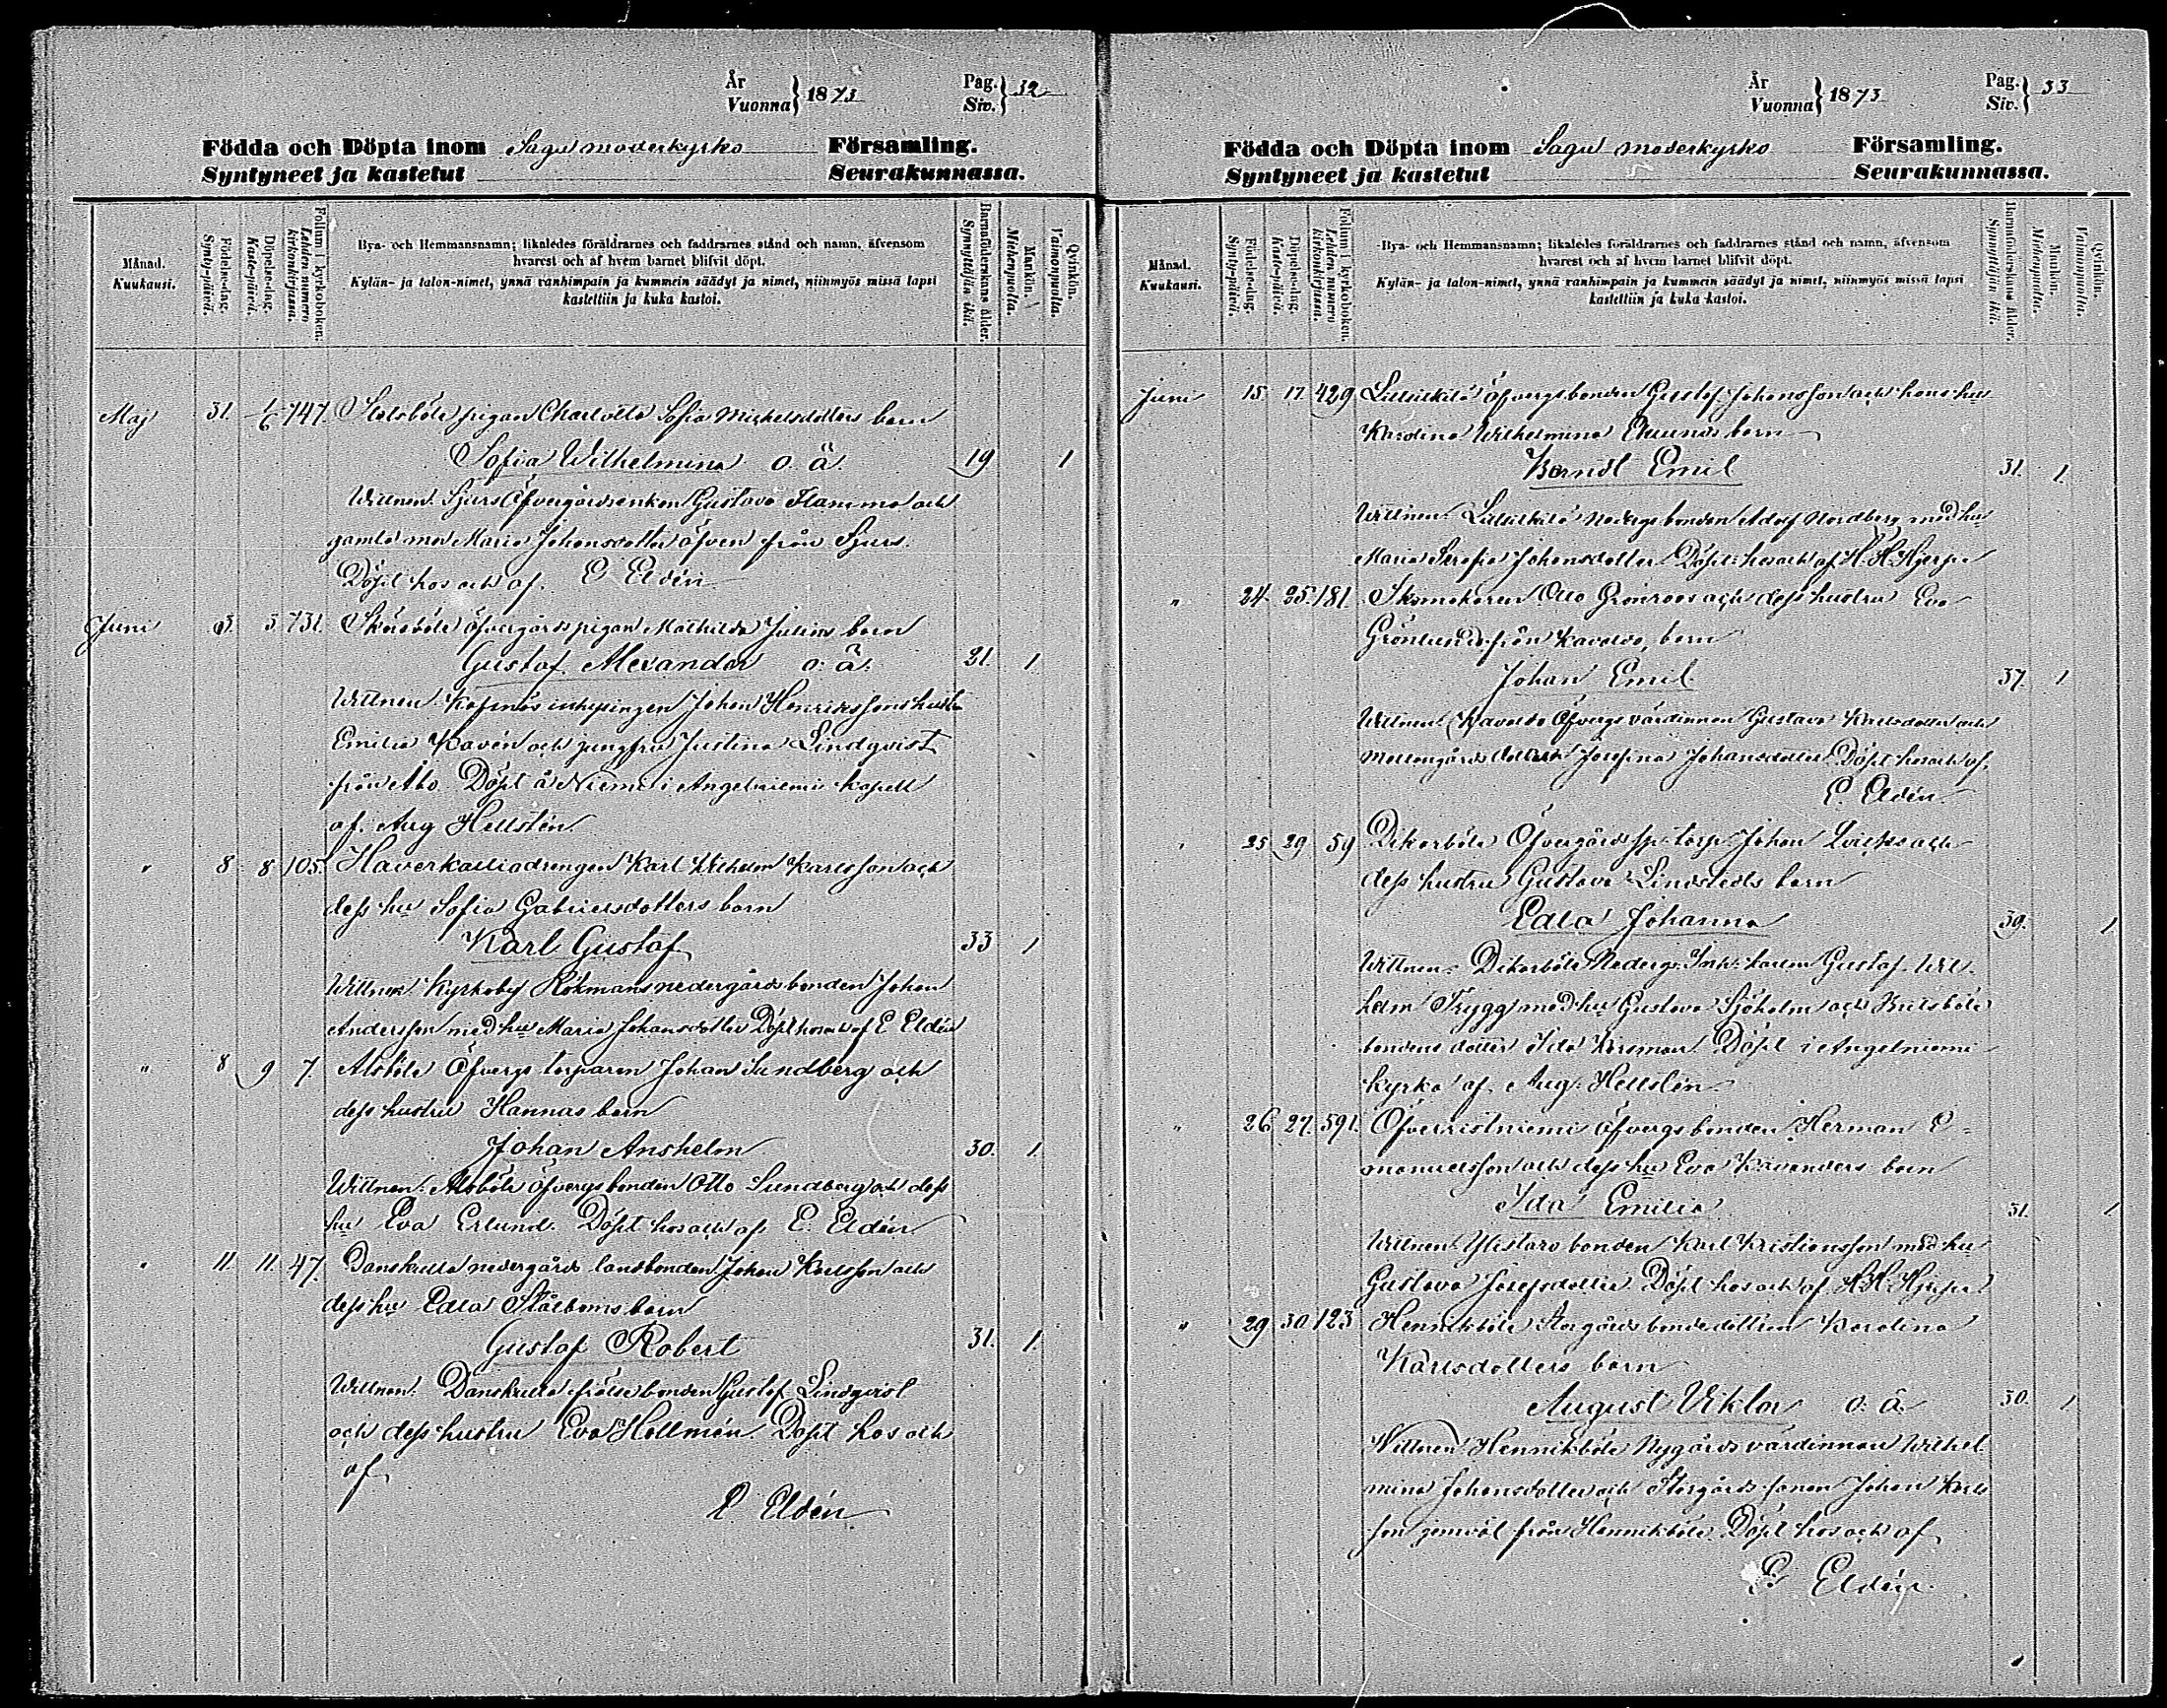 År
Vuonna } 1873
Pag.
Siv. } 32
Födda och Döpta inom Sagu moderkyrko Församling.
Syntyneet ja kastetut Seurakunnassa.
Månad.
Kuukausi.
Födelse-dag.
Synty-päivä.
Döpelse-dag.
Kaste-päivä.
Folium i kyrkoboken.
Lehden numero kirkonkirjassa.
Bya- och Hemmansnamn; likaledes föräldrarnes och faddrarnes stånd och namn, äfvensom
hvarest och af hvem barnet blifvit döpt.
Kylän- ja talon-nimet, ynnä vanhimpain ja kummein säädyt ja nimet, niinmyös missä lapsi
kastettiin ja kuka kastoi.
Barnaföderskans ålder.
Synnyttäjän ikä.
Mankön.
Miehenpuolta.
Qvinkön.
Vaimonpuolta.
Maj 31. 1/6 747. pigan Charlotta Sofia Mickelsdotters barn
Sofia Wilhelmina o. ä. 19 1
Wittnen: Sjurs Öfvergårds enkan Gustava Flamma och
gamla mor Maria Johansdotter äfven från Sjurs.
Döpt hos och af. E Eldén
Juni 3. 3 731. öfvergårds pigan Mathilda Julins barn
Gustaf Alexander o. ä. 21. 1
Wittnen: inhysingen Johan Henrikssons hustru
Emilia Kavén och jungfru Justina Lindqvist
från Åbo. Döpt å Niemi i Angelniemi kapell
af. Aug Hellstén.
" 8 8 105. Haverkallia drengen Karl Wilhelm Karlsson och
dess hu Sofia Gabrielsdotters barn
Karl Gustaf 33 1
Wittnen: Kyrkoby nedergårds bonden Johan
Andersson med hu Maria Johansdotter Döpt hos och af E Eldén
" 8 9 7. Alsböle Öfvergs torparen Johan Sundberg och
dess hustru Hannas barn
Johan Anshelm 30. 1.
Wittnen: Alsböle öfvergs bonden Otto Sundberg och dess
hu Eva Erlund. Döpt hos och af E. Eldén
" 11. 11. 47. Danskulla nedergårds landbonden Johan Karlsson och
dess hu Edla Stålboms barn
Gustaf Robert 31. 1.
Wittnen: Danskulla frälse bonden Gustaf Lindqvist
och dess hustru Eva Hellmén. Döpt hos och
af
E Eldén
År
Vuonna } 1873
Pag.
Siv. } 33
Födda och Döpta inom Sagu moderkyrko Församling.
Syntyneet ja kastetut Seurakunnassa.
Månad.
Kuukausi.
Födelse-dag.
Synty-päivä.
Döpelse-dag.
Kaste-päivä.
Folium i kyrkoboken.
Lehden numero kirkonkirjassa.
Bya- och Hemmansnamn; likaledes föräldrarnes och faddrarnes stånd och namn, äfvensom
hvarest och af hvem barnet blifvit döpt.
Kylän- ja talon-nimet, ynnä vanhimpain ja kummein säädyt ja nimet, niinmyös missä lapsi
kastettiin ja kuka kastoi.
Barnaföderskans ålder.
Synnyttäjän ikä.
Mankön.
Miehenpuolta.
Qvinkön.
Vaimonpuolta.
Juni 15 17. 429 öfvergs bonden Gustaf Johansson och hans hu
Karolina Wilhelmina Ekunds barn
Berndt Emil 31. 1.
Wittnen: nedergs bonden Adolf Nordberg med hu
Maria Serafia Johansdotter. Döpt hos och af H. H. Hjerpe
" 24. 25. 181. Skomakaren Otto Grönroos och dess hustru Eva
Grönlunds från Kavaldo, barn
Johan Emil 37. 1
Wittnen: Kavaldo Öfvergs värdinnan Gustava Karlsdotter och
Mellangårds dottren Josefina Johansdotter. Döpt hos och af.
E. Eldén.
" 25 29 59 Dikarböle Öfvergårds sp. torp. Johan och
dess hustru Gustava Lindstedts barn
Edla Johanna 39. 1
Wittnen: Dikarböle Nedergs Inh. karlen Gustaf Wil-
helm Trygg med hu Gustava Sjöholm och
bondens dotter Ida Korsman. Döpt i Angelniemi
kyrka af. Aug. Hellstén
" 26 27. 591. Öfverristniemi öfvergs bonden Herman E-
manuelsson och dess hu Eva Kavanders barn
Ida Emilia 31. 1
Wittnen: Ylistaro bonden Karl Kristiansson med hu
Gustava Josefsdotter Döpt hos och af H. H. Hjerpe
" 29 30. 123 Henrikböle Storgårds bondedottren Karolina
Karlsdotters barn
August Viktor o. ä. 30. 1
Wittnen: Henrikböle Nygårds värdinnan Wilhel-
mina Johansdotter och Storgårds sonen Johan Karls
son jemväl från Henrikböle. Döpt hos och af
E. Eldén.